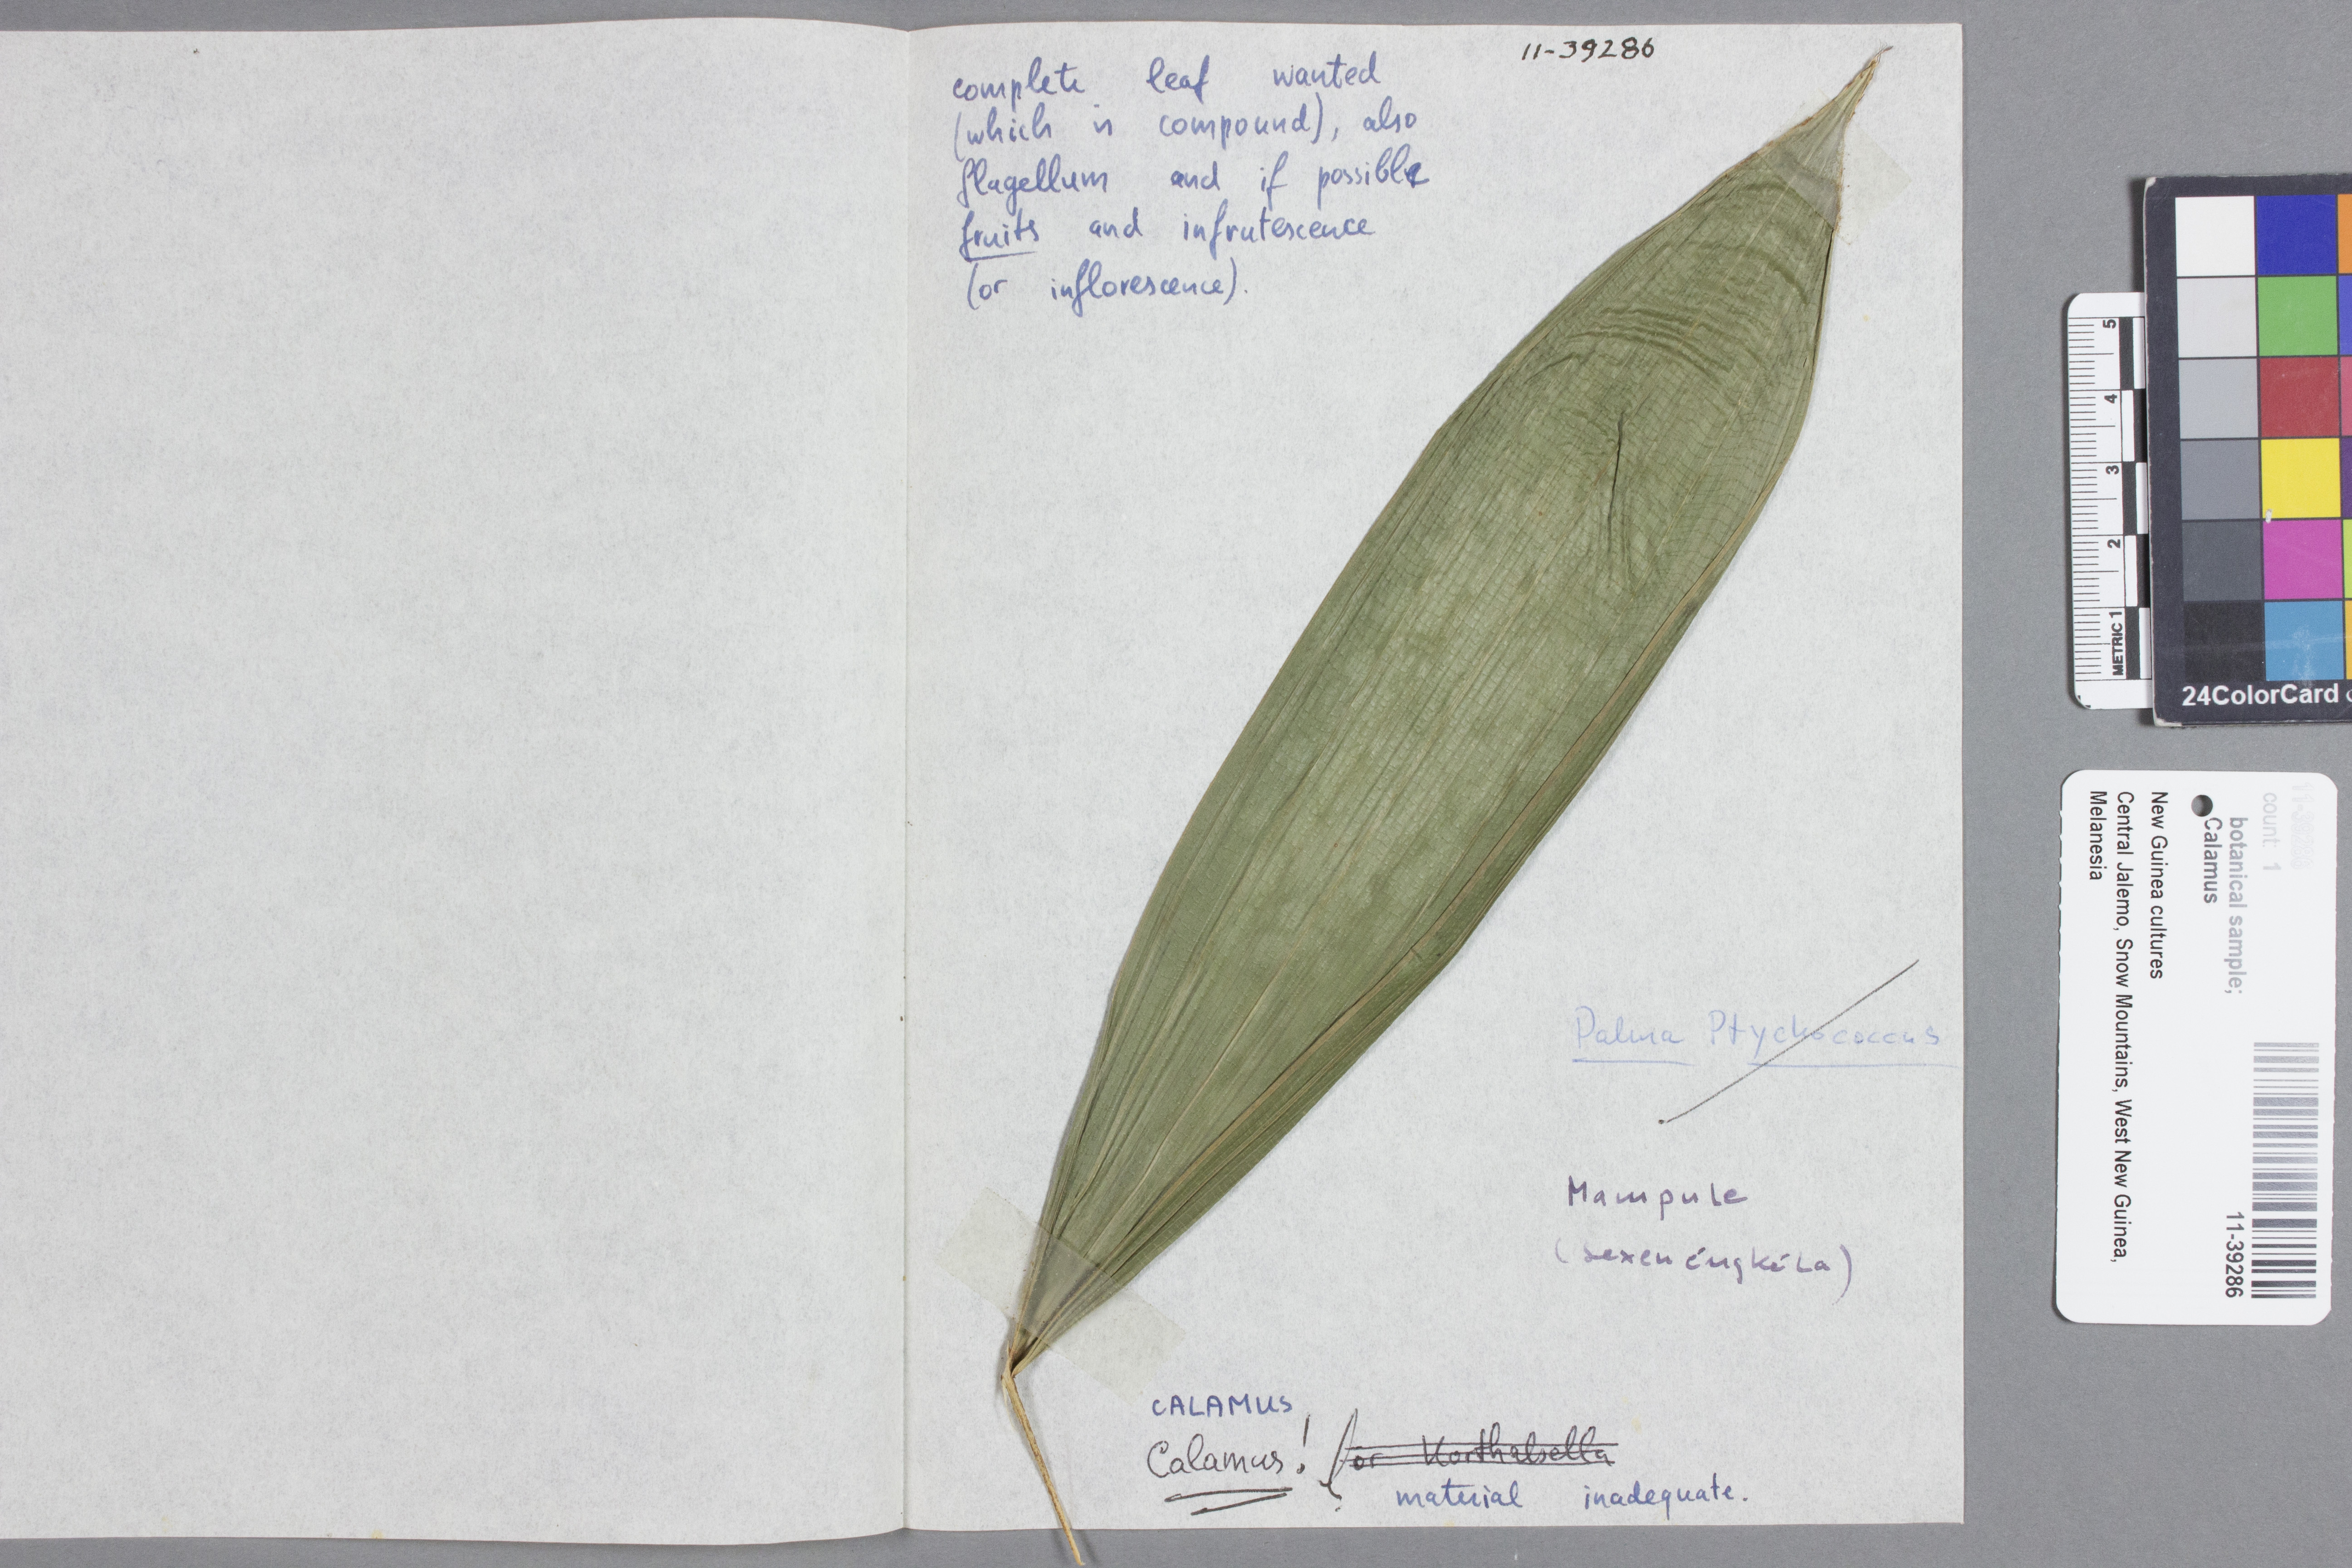 11-39286
complete leaf wanted
(which is compound), also
flagellum and if possible
fruits and infrutescence
(or inflorescence).
Palma Ptychococcus
Mampule
(sexenéngkéla)
CALAMUS
Calamus! (or Korthalsella
material inadequate.
5
4
3
2
METRIC 1
24ColorCard
11-39286
count: 1
botanical sample;
Calamus
New Guinea cultures
Central Jalemo, Snow Mountains, West New Guinea,
Melanesia
11-39286